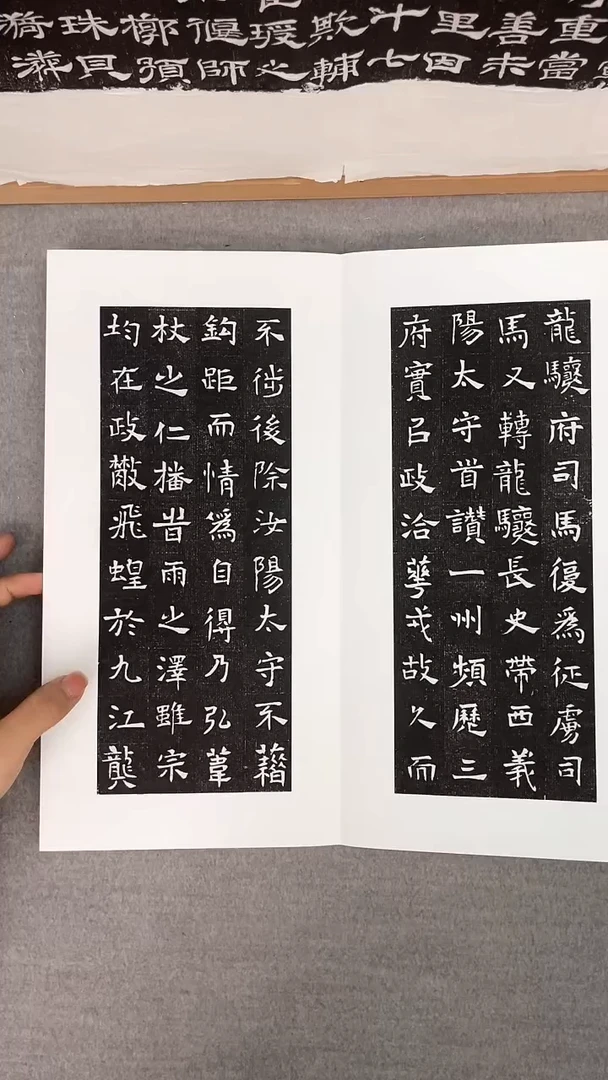 重當
善未
里因
十七
欺輔
瑗之
偃師
珠貝
龍驤府司馬復爲征虜司
馬又轉龍驤長史帶西義
陽太守首讚一州頻歷三
府實㠯政洽華戎故久而
不徙後除汝陽太守不藉
鈎距而情爲自得乃弘葦
杖之仁播旹雨之澤雖宗
均在政散飛蝗於九江龔